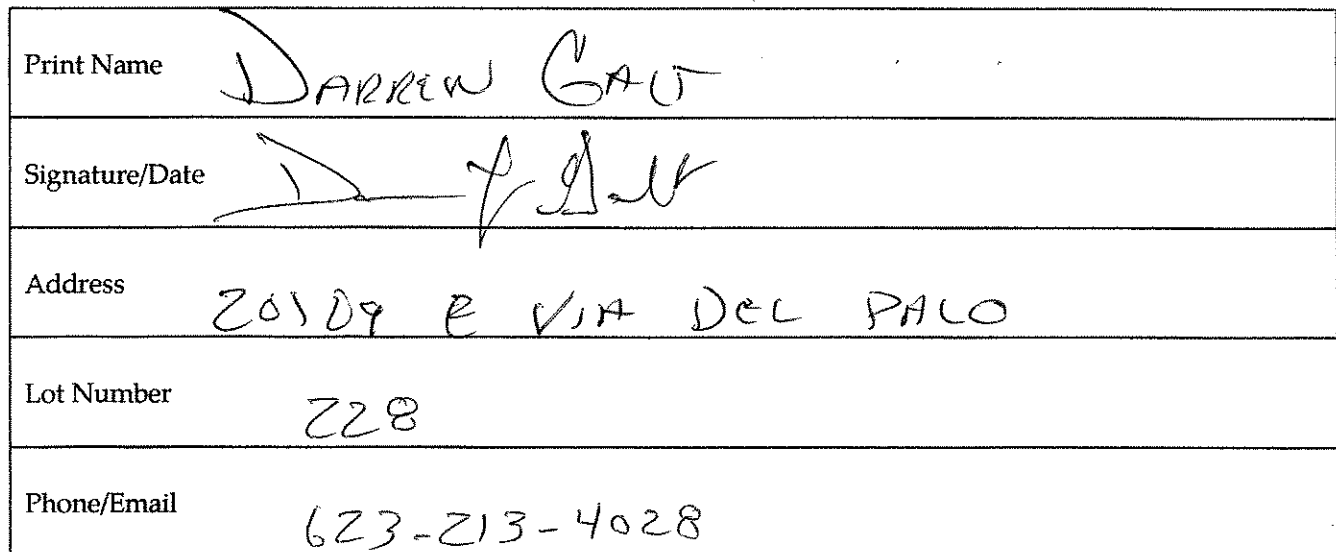 Print Name DARREN GALT
Signature/Date
Address 20109 E VIA DEL PALO
Lot Number 228
Phone/Email 623-213-4028